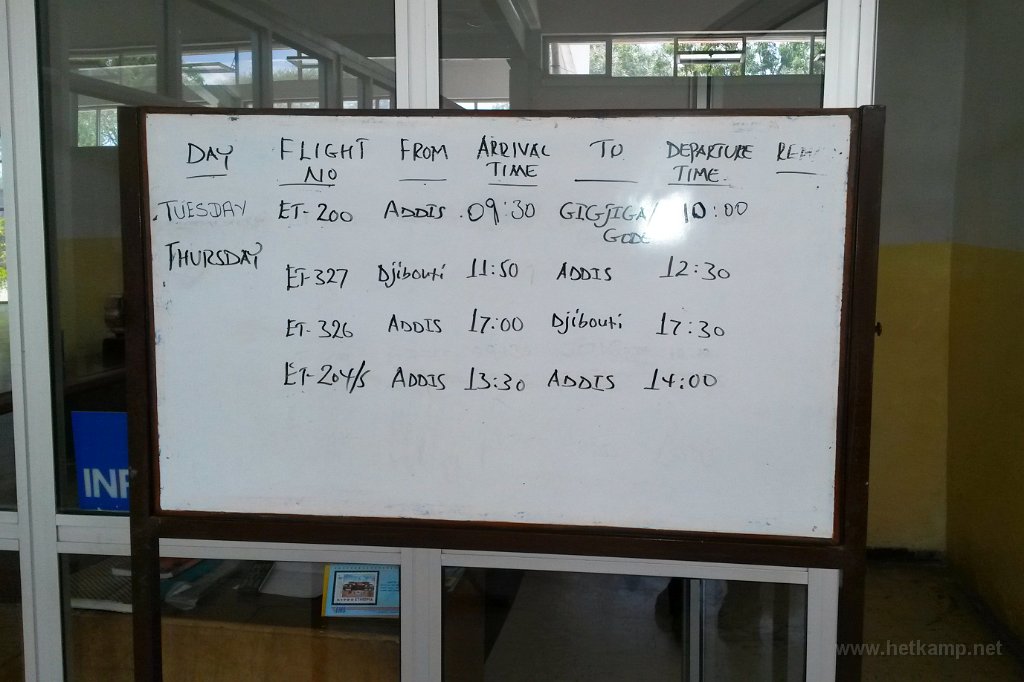 DAY FLIGHT NO FROM ARRIVAL TIME TO DEPARTURE TIME
TUESDAY ET-200 ADDIS 09:30 GIGJIGA/ GODE 10:00
THURSDAY
ET-327 Djibouti 11:50 ADDIS 12:30
ET-326 ADDIS 17:00 Djibouti 17:30
ET-204/5 ADDIS 13:30 ADDIS 14:00
INF
www.hetkamp.net